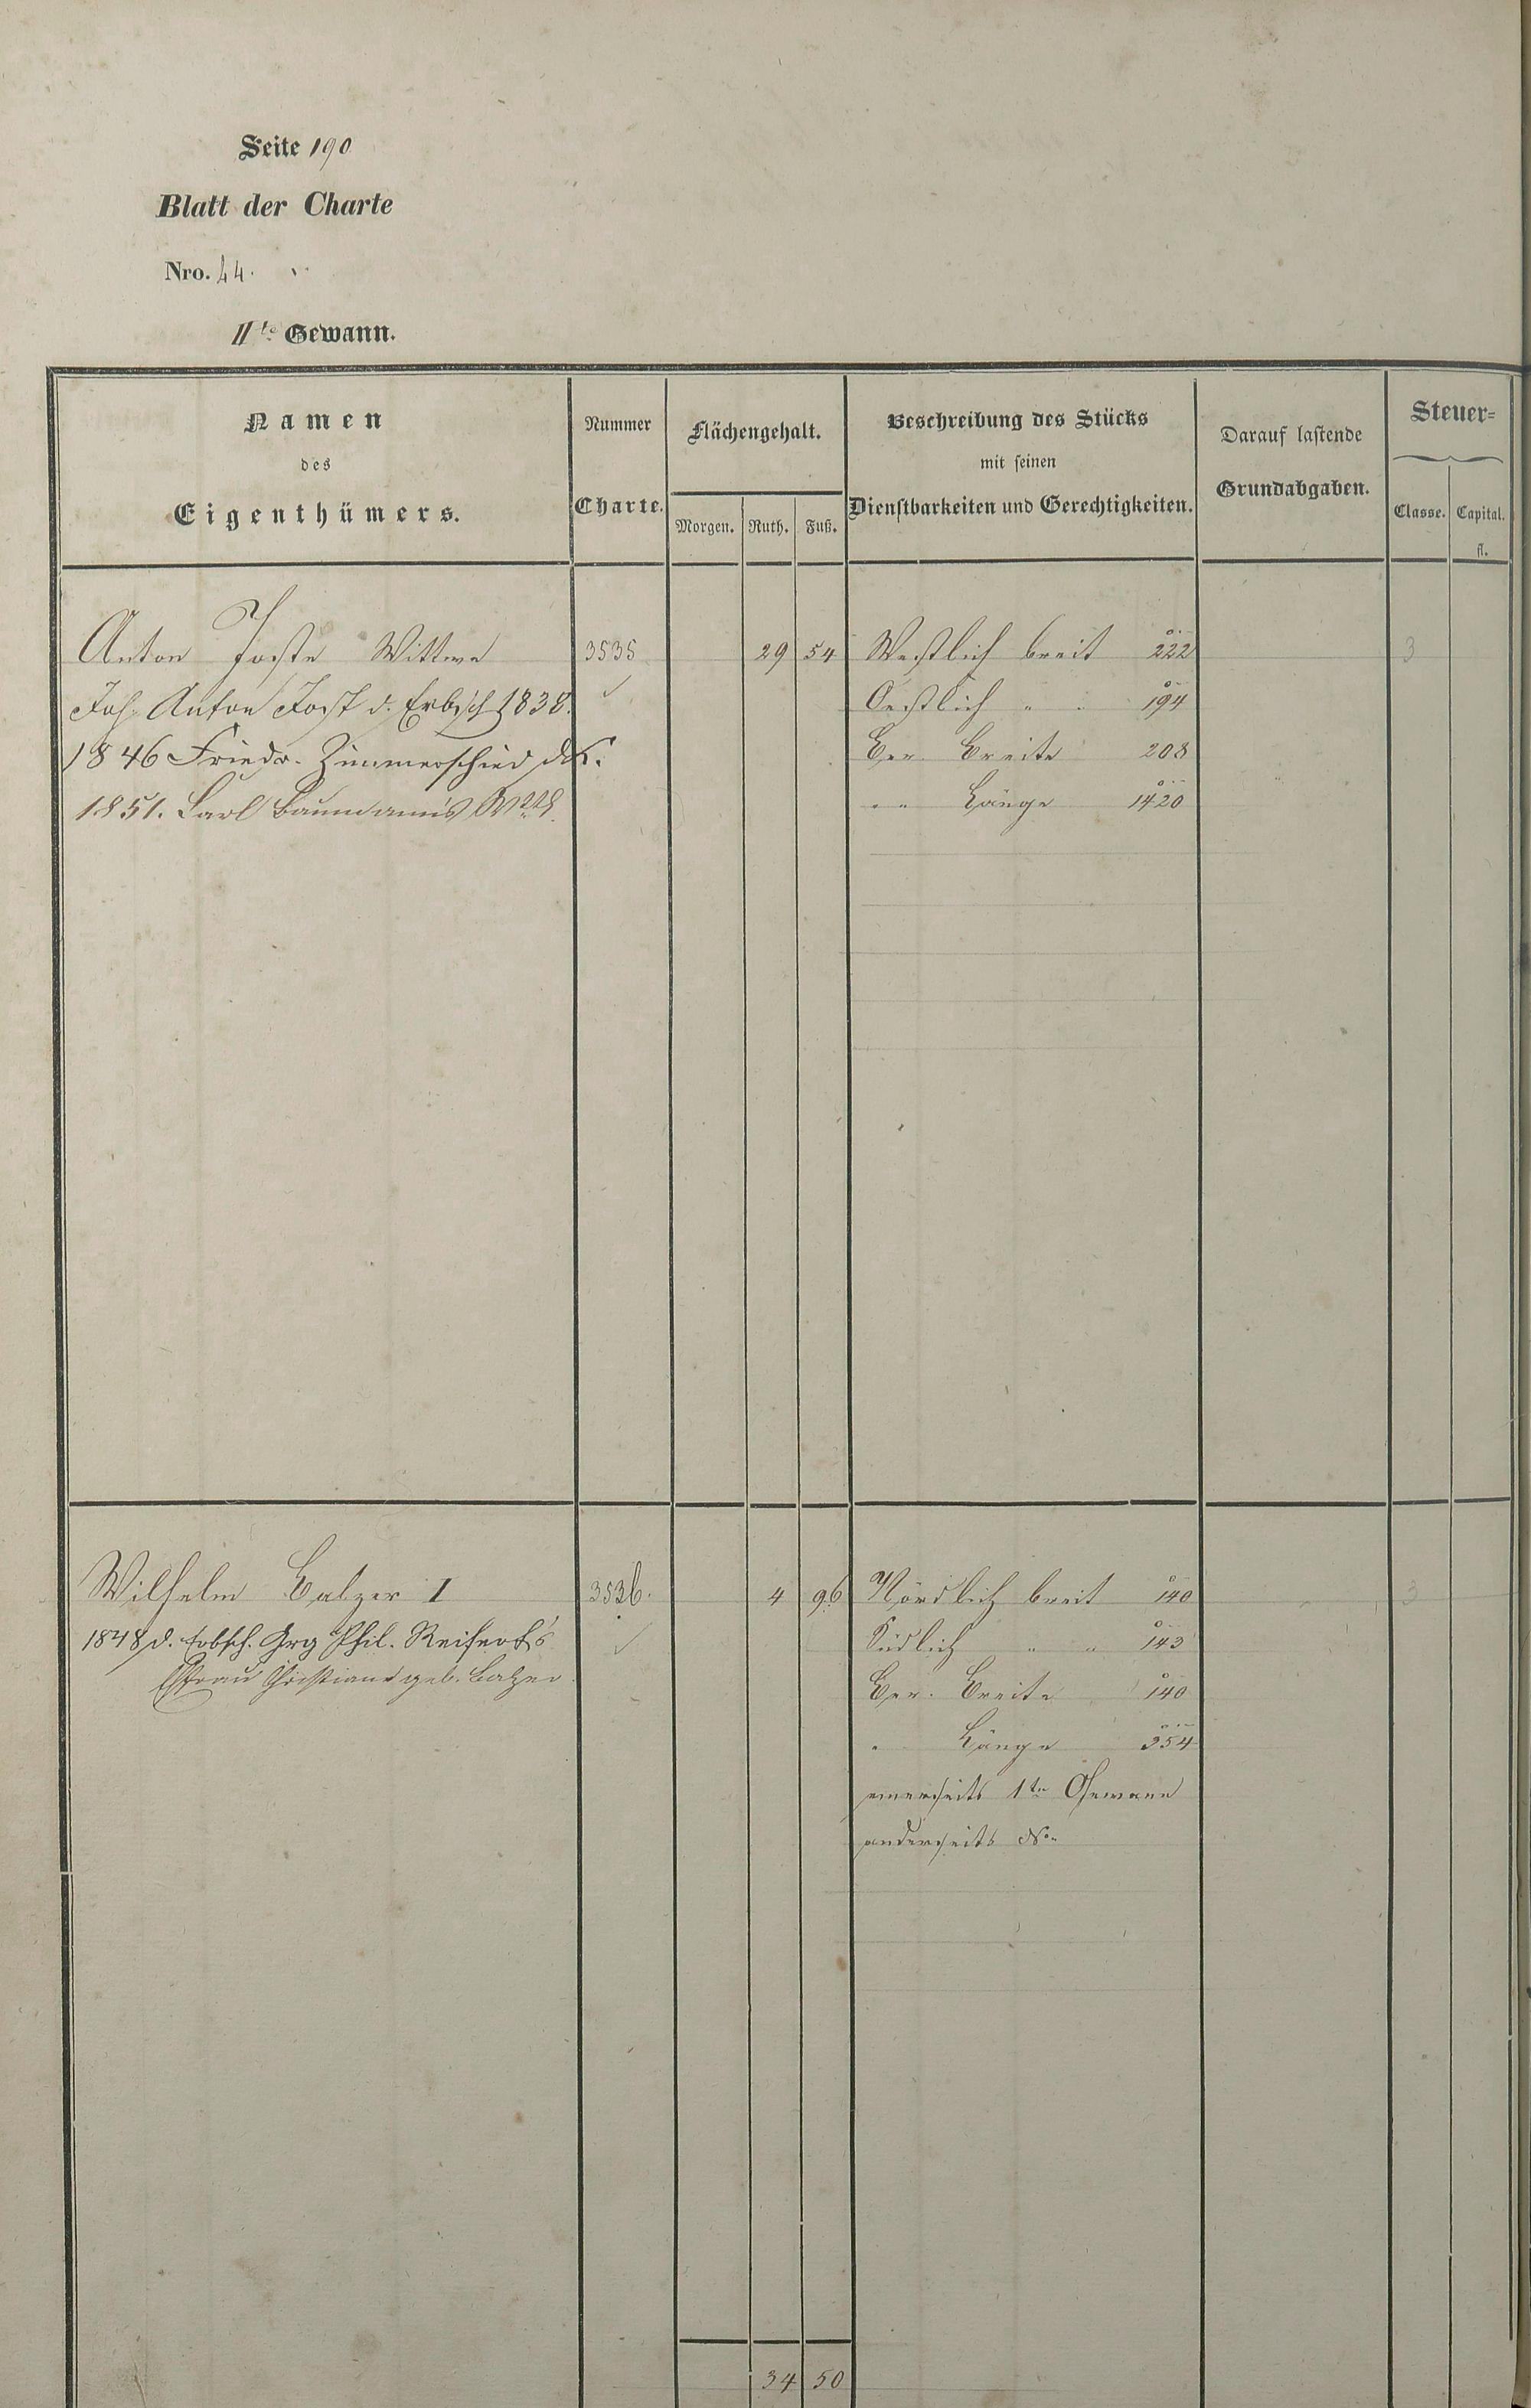 Seite 190
Blatt der Charte
Nro. 44.
IIte Gewann.
Namen des Eigenthümers.
Nummer Charte.
Flächengehalt.
Morgen. Ruth. Fuß.
Beschreibung des Stücks mit seinen Dienstbarkeiten und Gerechtigkeiten.
Darauf lastende Grundabgaben.
Steuer=
Classe. Capital.
fl.
Anton Joste Wittwe 3535 29 54 Westlich breit 222 3
Joh. Anton Jost d. Erbsch 1838. Oestlich " " 194
1846 Friedr. Zimmerschied d. K. Ber. Breite 208
1851. Carl Baumann's Wtb. " " Länge 1420
Wilhelm Balzer I 3536. 4 96 Nördlich breit 140 3
1848 d. Erbsch. Grg Phil. Reifert's Südlich " " 143
Efrau Christiane geb. Balzer. Ber. Breite 140
" Länge 354
einerseits 1te Gewann
anderseits No
34 50